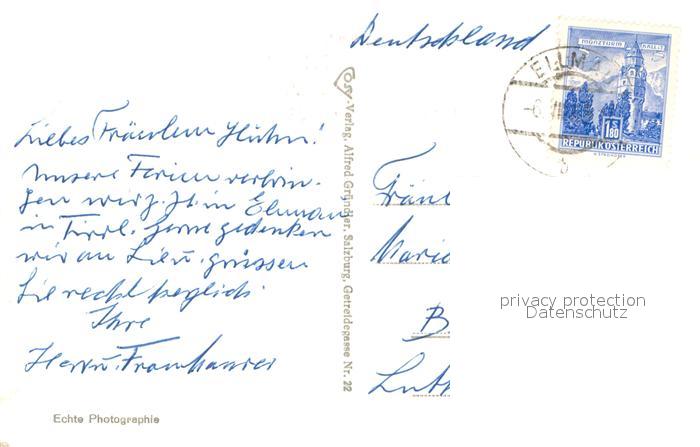 Deutschland
ELLMA
MÜNZTURM HALL i.T.
1.80
S
REPUBLIK ÖSTERREICH
Liebes Fräulein Huhn!
Unsere Ferien verbrin-
gen wir z. Zt. in Elmau
in Tirol. Gerne gedenken
wir an Sie u. grüssen
Sie recht herzlich.
Ihre
Cosy-Verlag, Alfred Gründler, Salzburg, Getreidegasse Nr. 22
Fräul
Marie
B
privacy protection
Datenschutz
Echte Photographie